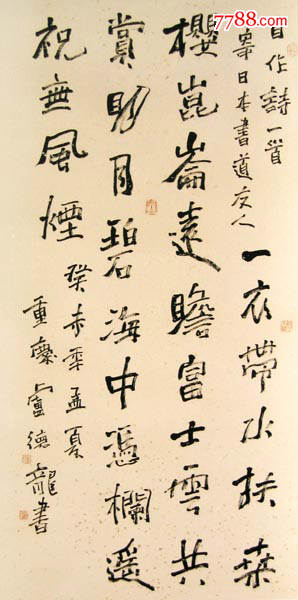 7788.com
自作詩一首
寄日本書道友人
一衣帶水扶桑
櫻崑崙遠瞻富士雲共
賞明月碧海中憑欄遥
祝無風煙
癸未年孟夏
重慶盧德龍書